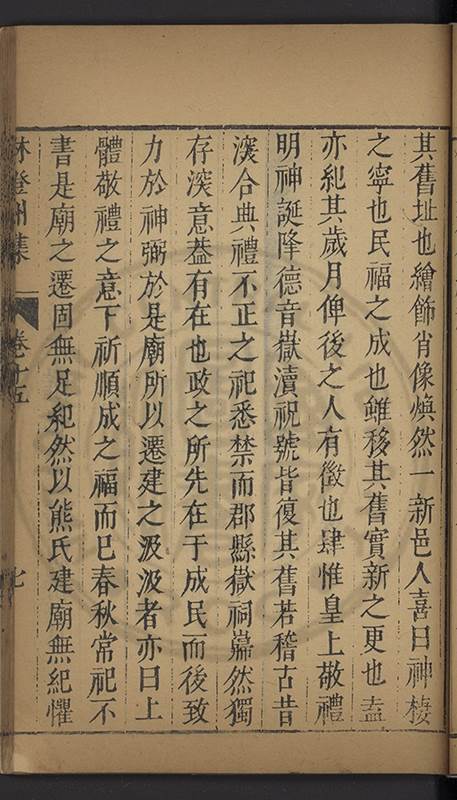 其舊址也繪飾肖像煥然一新邑人喜曰神棲
之寧也民福之成也雖移其舊實新之更也盍
亦紀其歲月俾後之人有徵也肆惟皇上敬禮
明神誕降德音嶽瀆祝號皆復其舊若稽古昔
深合典禮不正之祀悉禁而郡縣嶽祠巋然獨
存深意葢有在也政之所先在于成民而後致
力於神弼於是廟所以遷建之汲汲者亦曰上
體敬禮之意下祈順成之福而已春秋常祀不
書是廟之遷固無足紀然以熊氏建廟無紀懼
林登州集 卷十五 七